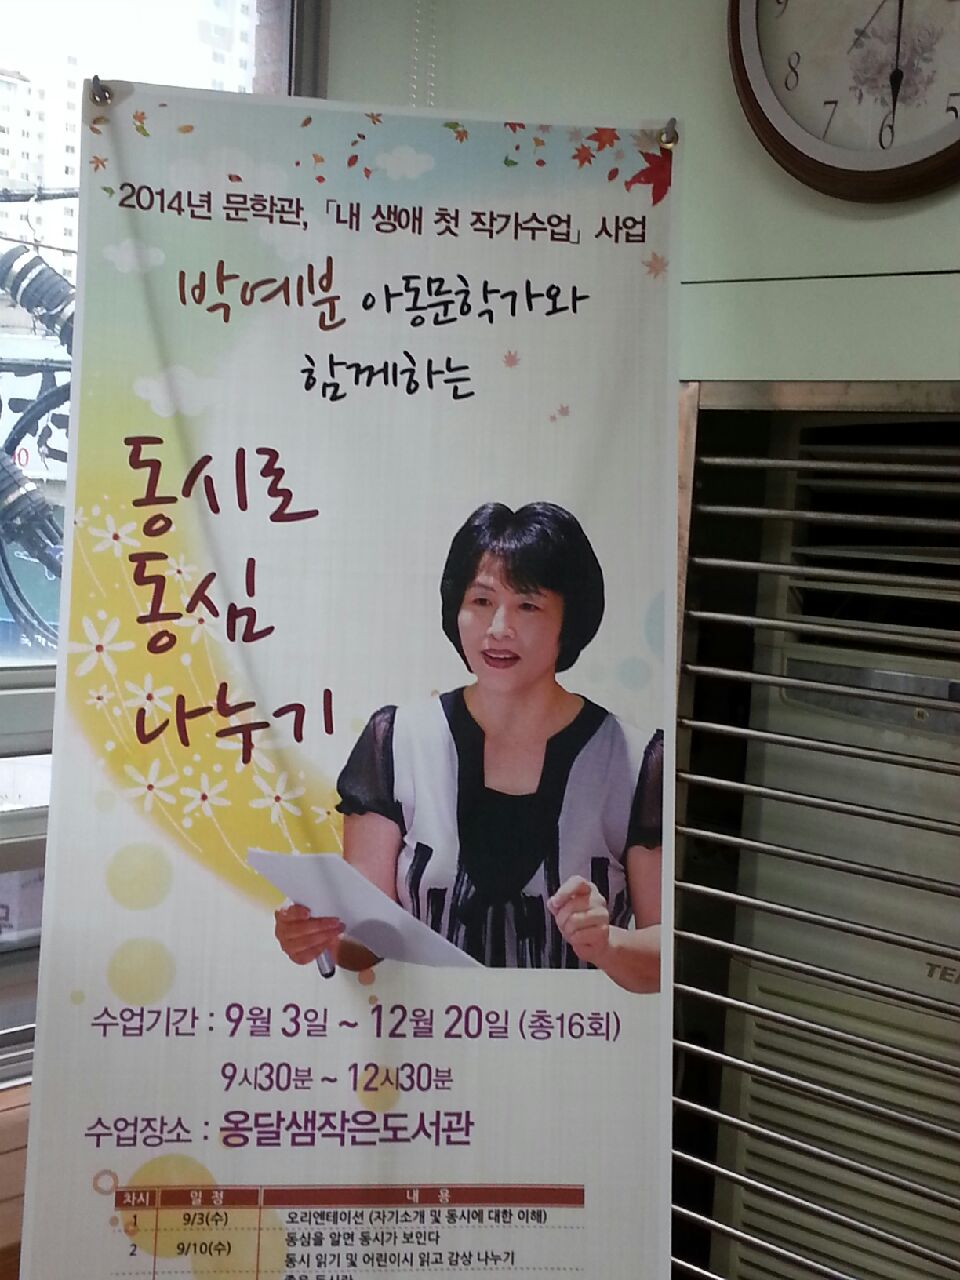 2014년 문학관, 「내 생애 첫 작가수업」 사업
박예분 아동문학가와
함께하는
동시로
동심
나누기
수업기간 : 9월 3일 ~ 12월 20일 (총16회)
9시30분 ~ 12시30분
수업장소 : 옹달샘작은도서관
차시 일 정 내 용
1 9/3(수) 오리엔테이션 (자기소개 및 동시에 대한 이해)
2 9/10(수) 동심을 알면 동시가 보인다
동시 읽기 및 어린이시 읽고 감상 나누기
9
8
7
6
5